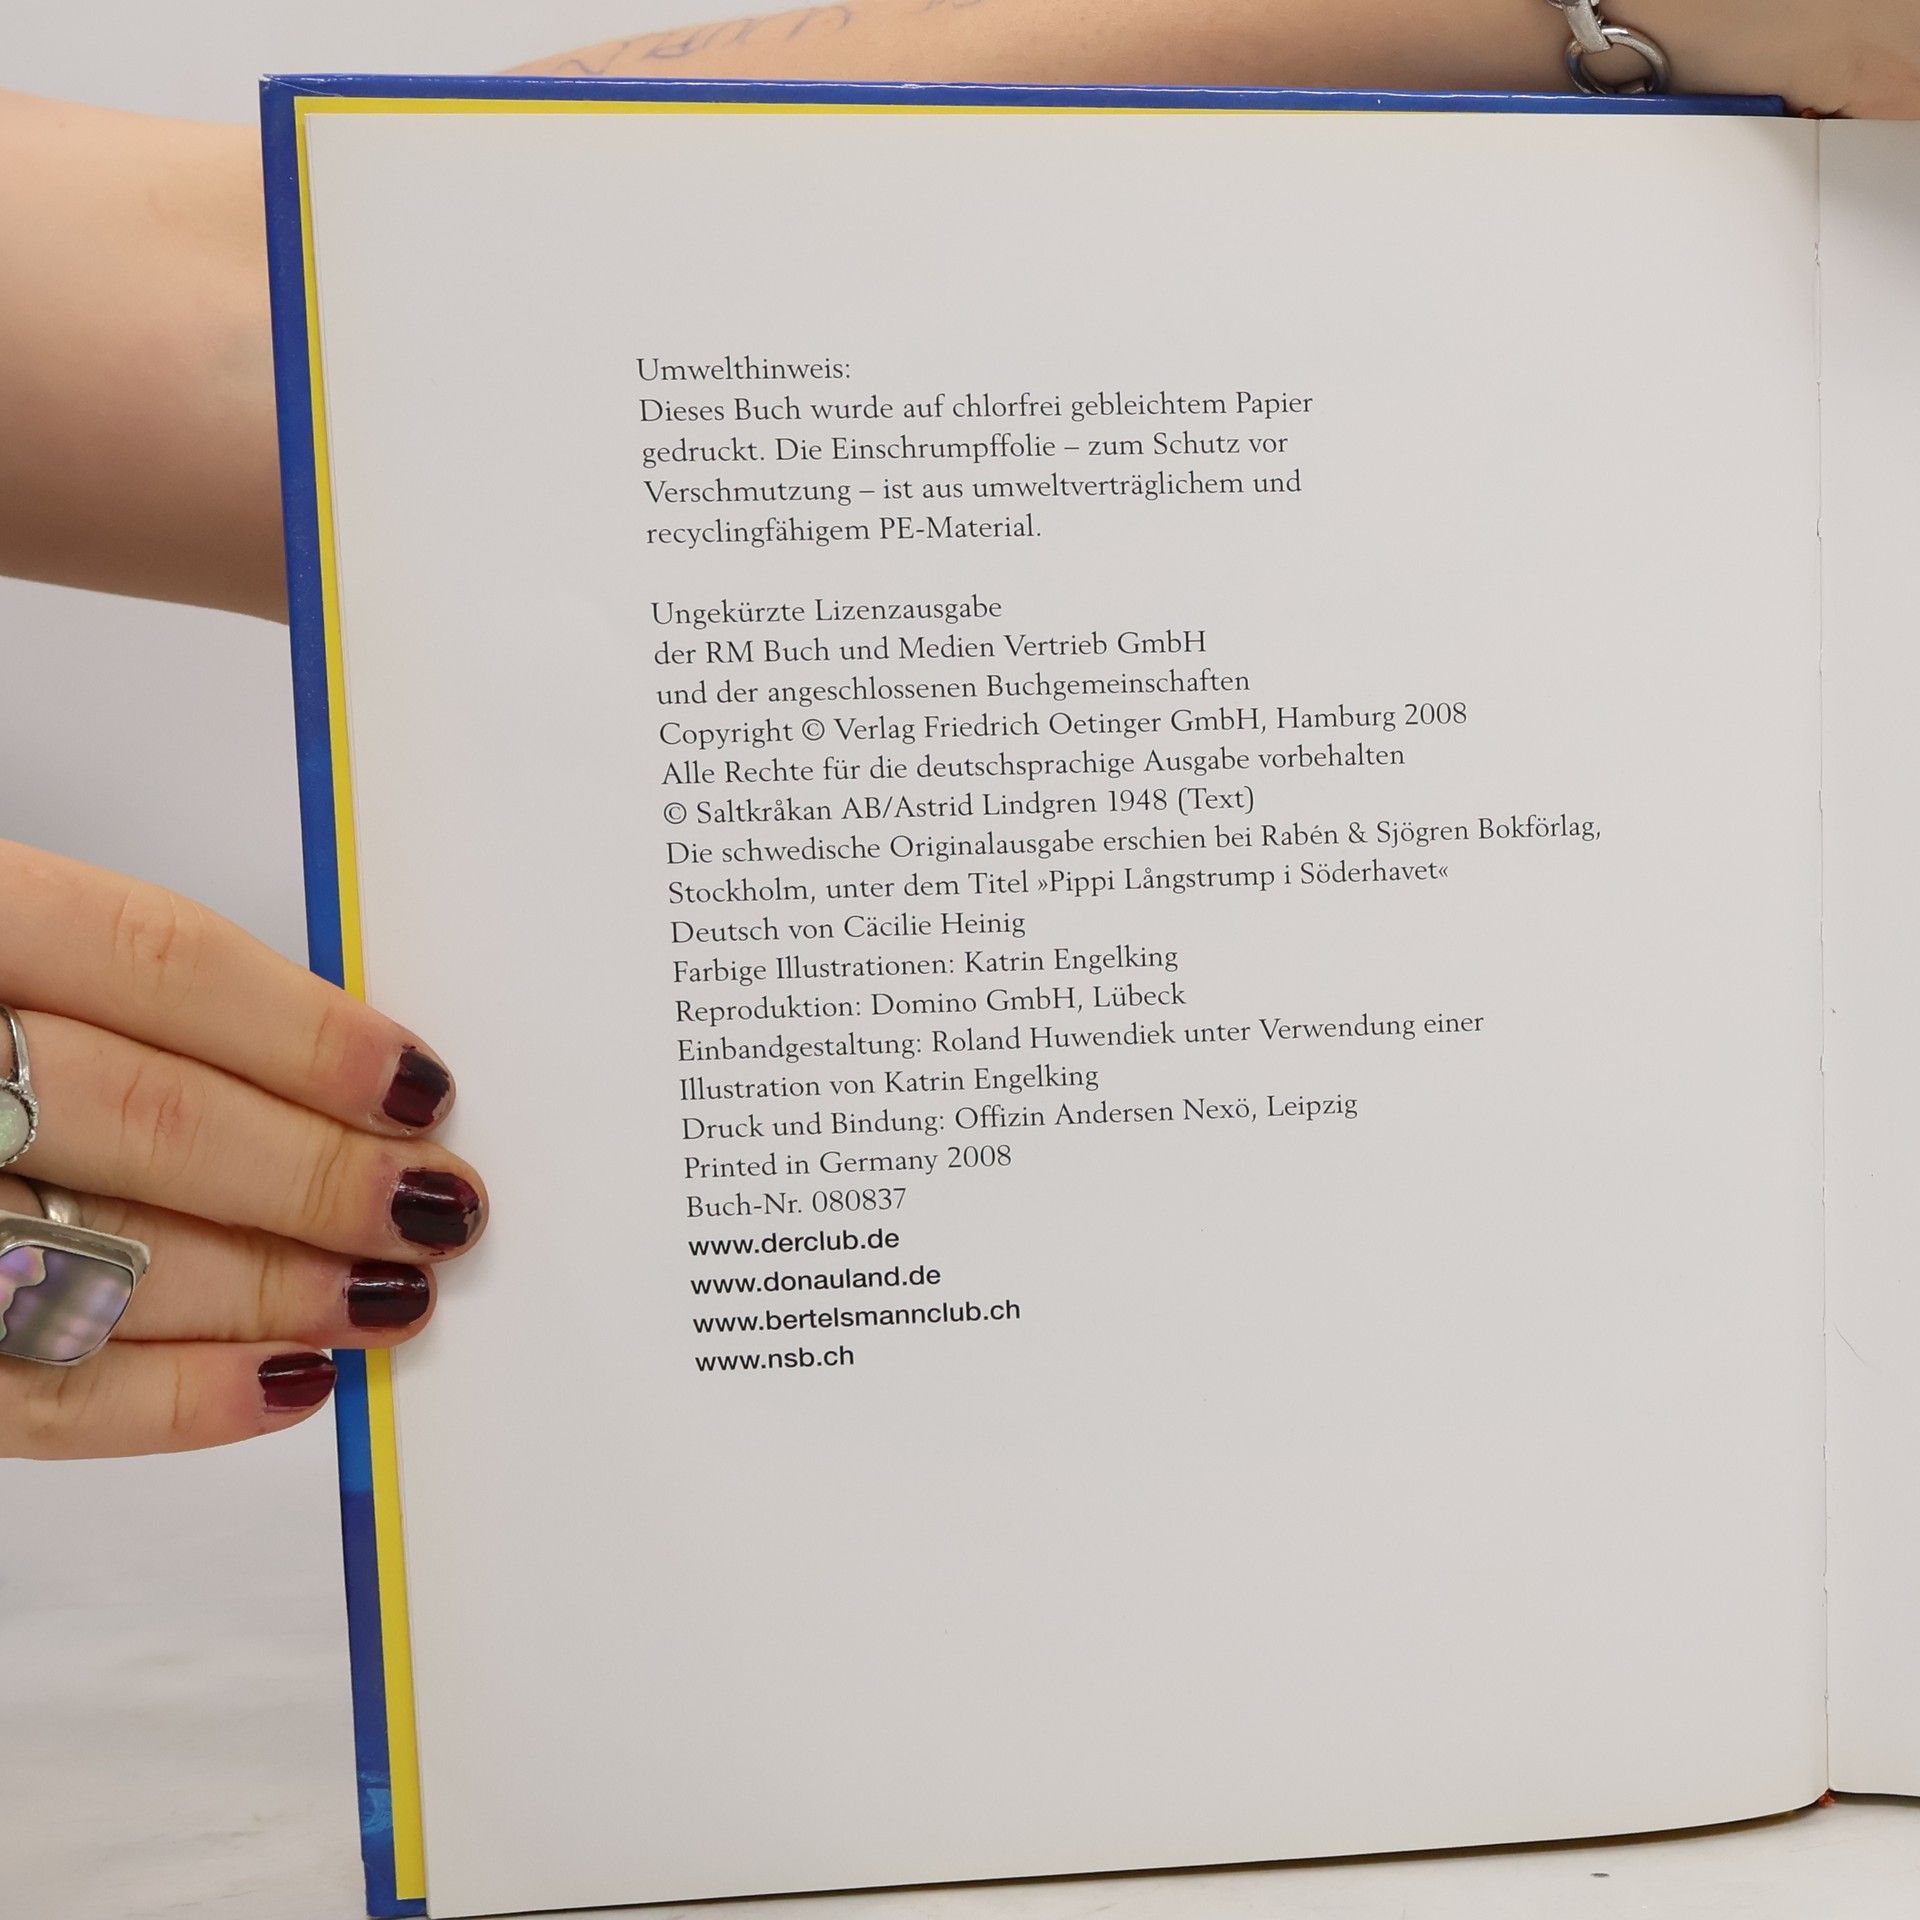 Umwelthinweis:
Dieses Buch wurde auf chlorfrei gebleichtem Papier
gedruckt. Die Einschrumpffolie – zum Schutz vor
Verschmutzung – ist aus umweltverträglichem und
recyclingfähigem PE-Material.
Ungekürzte Lizenzausgabe
der RM Buch und Medien Vertrieb GmbH
und der angeschlossenen Buchgemeinschaften
Copyright © Verlag Friedrich Oetinger GmbH, Hamburg 2008
Alle Rechte für die deutschsprachige Ausgabe vorbehalten
© Saltkråkan AB/Astrid Lindgren 1948 (Text)
Die schwedische Originalausgabe erschien bei Rabén & Sjögren Bokförlag,
Stockholm, unter dem Titel »Pippi Långstrump i Söderhavet«
Deutsch von Cäcilie Heinig
Farbige Illustrationen: Katrin Engelking
Reproduktion: Domino GmbH, Lübeck
Einbandgestaltung: Roland Huwendiek unter Verwendung einer
Illustration von Katrin Engelking
Druck und Bindung: Offizin Andersen Nexö, Leipzig
Printed in Germany 2008
Buch-Nr. 080837
www.derclub.de
www.donauland.de
www.bertelsmannclub.ch
www.nsb.ch